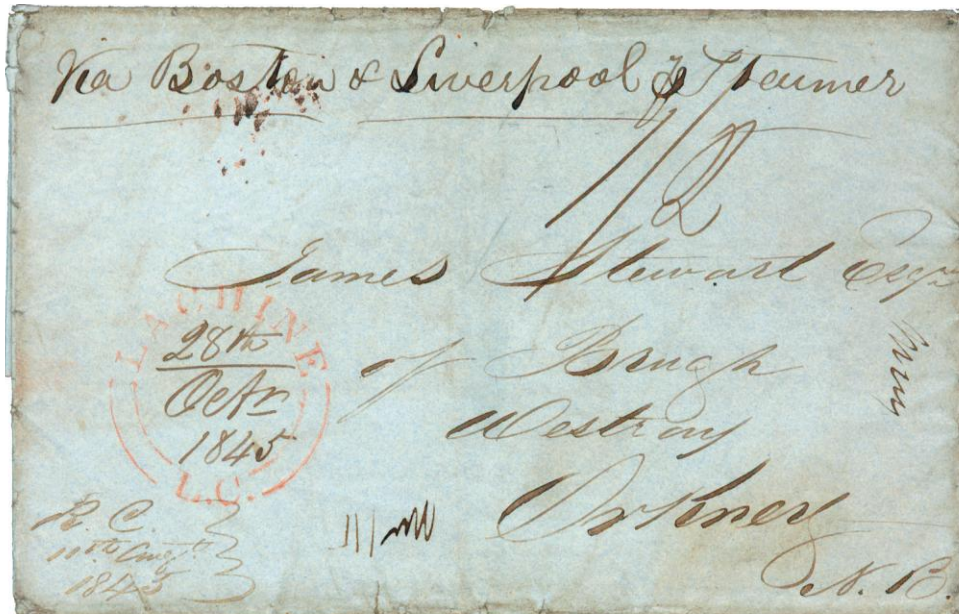 Via Boston & Liverpool ⅌ Steamer
1/2
James Stewart Esqr
of Brugh
Westray
Orkney
N. B.
LACHINE
28th
Octr
1845
L.C.
R. C.
11th Augt
1845